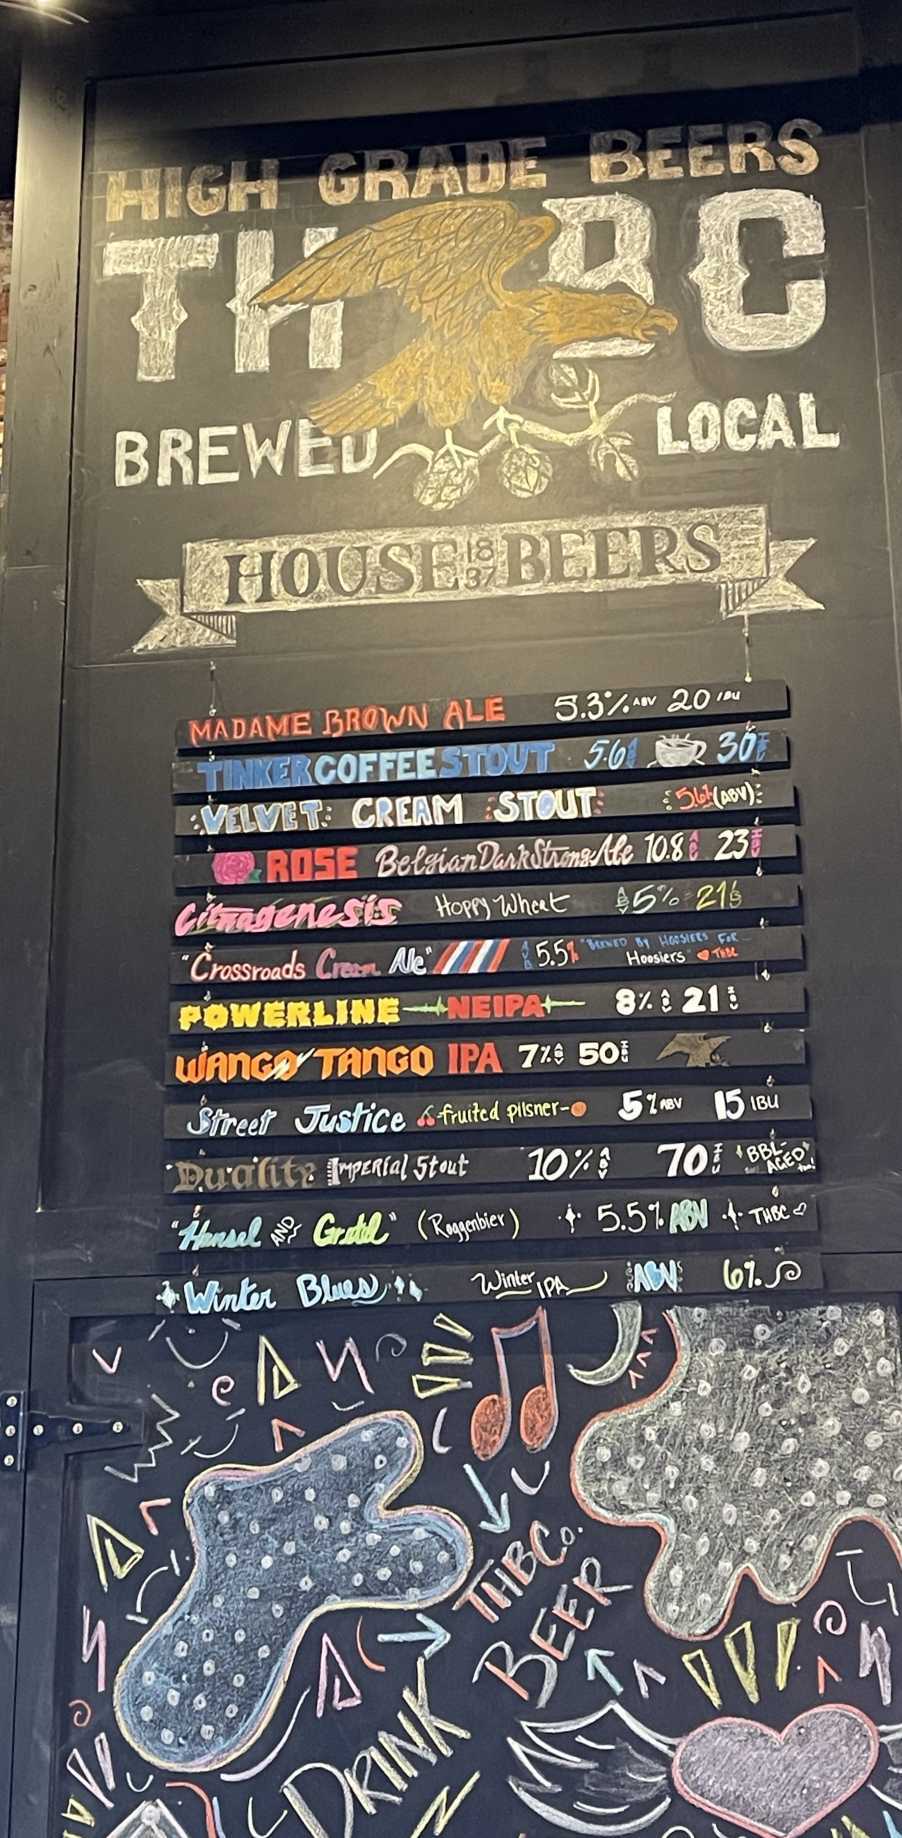 HIGH GRADE BEERS
TH BC
BREWED LOCAL
HOUSE 18 37 BEERS
MADAME BROWN ALE 5.3% ABV 20 IBU
TINKER COFFEE STOUT 5.6 30
VELVET CREAM STOUT 5.6% (ABV)
ROSE Belgian Dark Strong Ale 10.8 ABV 23 IBU
Citragenesis Hoppy Wheat ABV 5% 21
"Crossroads Cream Ale" ABV 5.5% "BREWED BY HOOSIERS FOR
Hoosiers" THBC
POWERLINE NEIPA 8% ABV 21 IBU
WANGO TANGO IPA 7% ABV 50 IBU
Street Justice -fruited pilsner- 5% ABV 15 IBU
Duality Imperial Stout 10% ABV 70 IBU BBL-AGED too!
"Hansel AND Gretel" (Roggenbier) 5.5% ABV THBC
Winter Blues Winter IPA ABV 6%
THBCo.
BEER
DRINK